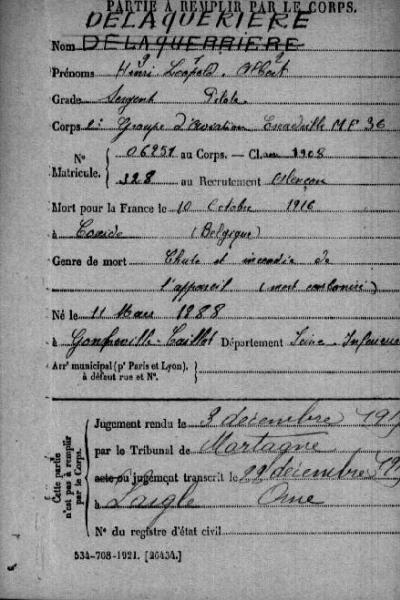 PARTIE À REMPLIR PAR LE CORPS.
DELAQUERIERE
Nom DELAQUERRIERE
Prénoms Henri Léopold Albert
Grade Sergent Pilote
Corps 2e Groupe d'Aviation Escadrille MF 36
N° 06251 au Corps. — Classe 1908
Matricule. 328 au Recrutement Alençon
Mort pour la France le 10 Octobre 1916
à (Belgique)
Genre de mort Chute et incendie de
l'appareil (mort carbonisé)
Né le 11 Mars 1888
à Gonfreville-Caillot Département Seine-Inférieure
Arrt municipal (pr Paris et Lyon),
à défaut rue et N°.
Cette partie
n'est pas à remplir
par le Corps.
Jugement rendu le 3 décembre 191
par le Tribunal de Mortagne
acte ou jugement transcrit le 22 décembre 191
à Laigle Orne
N° du registre d'état civil
534-708-1921. [26434.]